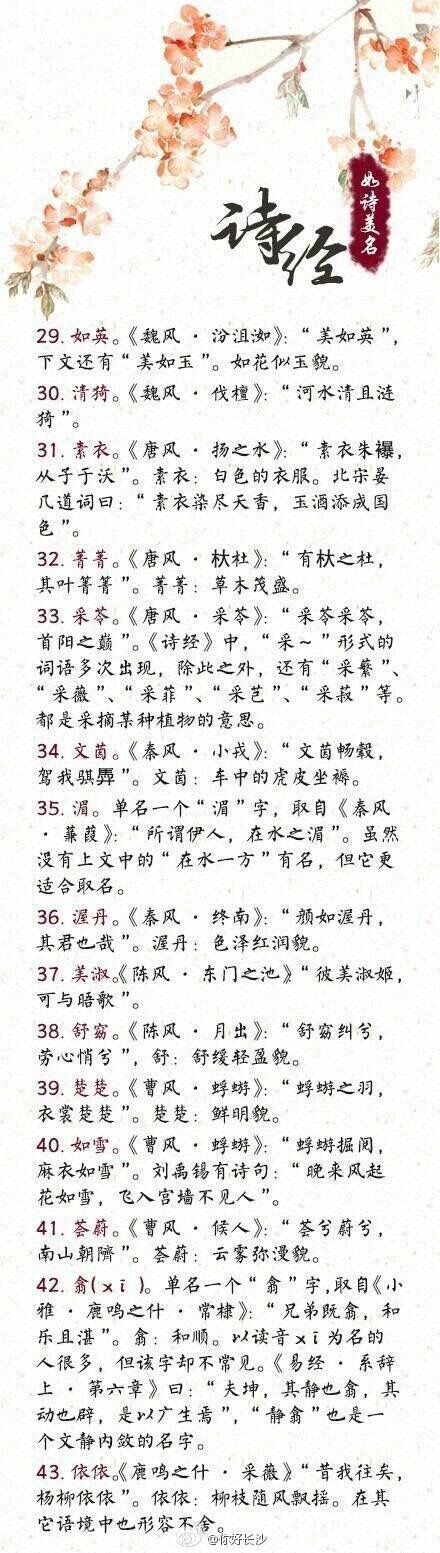 诗经
如诗美名
29. 如英。《魏风 · 汾沮洳》：“美如英”，
下文还有“美如玉”。如花似玉貌。
30. 清猗。《魏风 · 伐檀》：“河水清且涟
猗”。
31. 素衣。《唐风 · 扬之水》：“素衣朱襮，
从子于沃”。素衣：白色的衣服。北宋晏
几道词曰：“素衣染尽天香，玉酒添成国
色”。
32. 菁菁。《唐风 · 杕杜》：“有杕之杜，
其叶菁菁”。菁菁：草木茂盛。
33. 采苓。《唐风 · 采苓》：“采苓采苓，
首阳之巅”。《诗经》中，“采~”形式的
词语多次出现，除此之外，还有“采蘩”、
“采薇”、“采菲”、“采芑”、“采菽”等。
都是采摘某种植物的意思。
34. 文茵。《秦风 · 小戎》：“文茵畅毂，
驾我骐馵”。文茵：车中的虎皮坐褥。
35. 湄。单名一个“湄”字，取自《秦风
· 蒹葭》：“所谓伊人，在水之湄”。虽然
没有上文中的“在水一方”有名，但它更
适合取名。
36. 渥丹。《秦风 · 终南》：“颜如渥丹，
其君也哉”。渥丹：色泽红润貌。
37. 美淑。《陈风 · 东门之池》“彼美淑姬，
可与晤歌”。
38. 舒窈。《陈风 · 月出》：“舒窈纠兮，
劳心悄兮”，舒：舒缓轻盈貌。
39. 楚楚。《曹风 · 蜉蝣》：“蜉蝣之羽，
衣裳楚楚”。楚楚：鲜明貌。
40. 如雪。《曹风 · 蜉蝣》：“蜉蝣掘阅，
麻衣如雪”。刘禹锡有诗句：“晚来风起
花如雪，飞入宫墙不见人”。
41. 荟蔚。《曹风 · 候人》：“荟兮蔚兮，
南山朝隮”。荟蔚：云雾弥漫貌。
42. 翕(xī)。单名一个“翕”字，取自《小
雅 · 鹿鸣之什 · 常棣》：“兄弟既翕，和
乐且湛”。翕：和顺。以读音xī为名的
人很多，但该字却不常见。《易经 · 系辞
上 · 第六章》曰：“夫坤，其静也翕，其
动也辟，是以广生焉”，“静翕”也是一
个文静内敛的名字。
43. 依依。《鹿鸣之什 · 采薇》“昔我往矣，
杨柳依依”。依依：柳枝随风飘摇。在其
它语境中也形容不舍。
@你好长沙